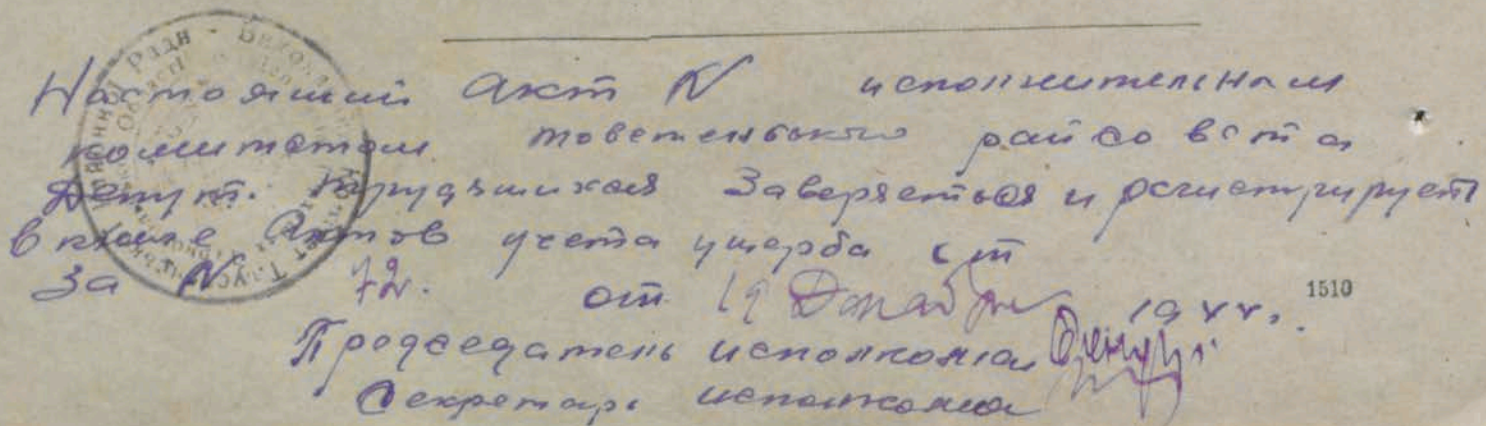 Настоящий Акт № исполнительным
комитетом райсовета
Депут. трудящихся Заверяеться и регистрирует
в книге Актов учета ущерба
за № 72. от 19 Декабря 1944.
1510
Председатель исполкома
Секретарь исполкома